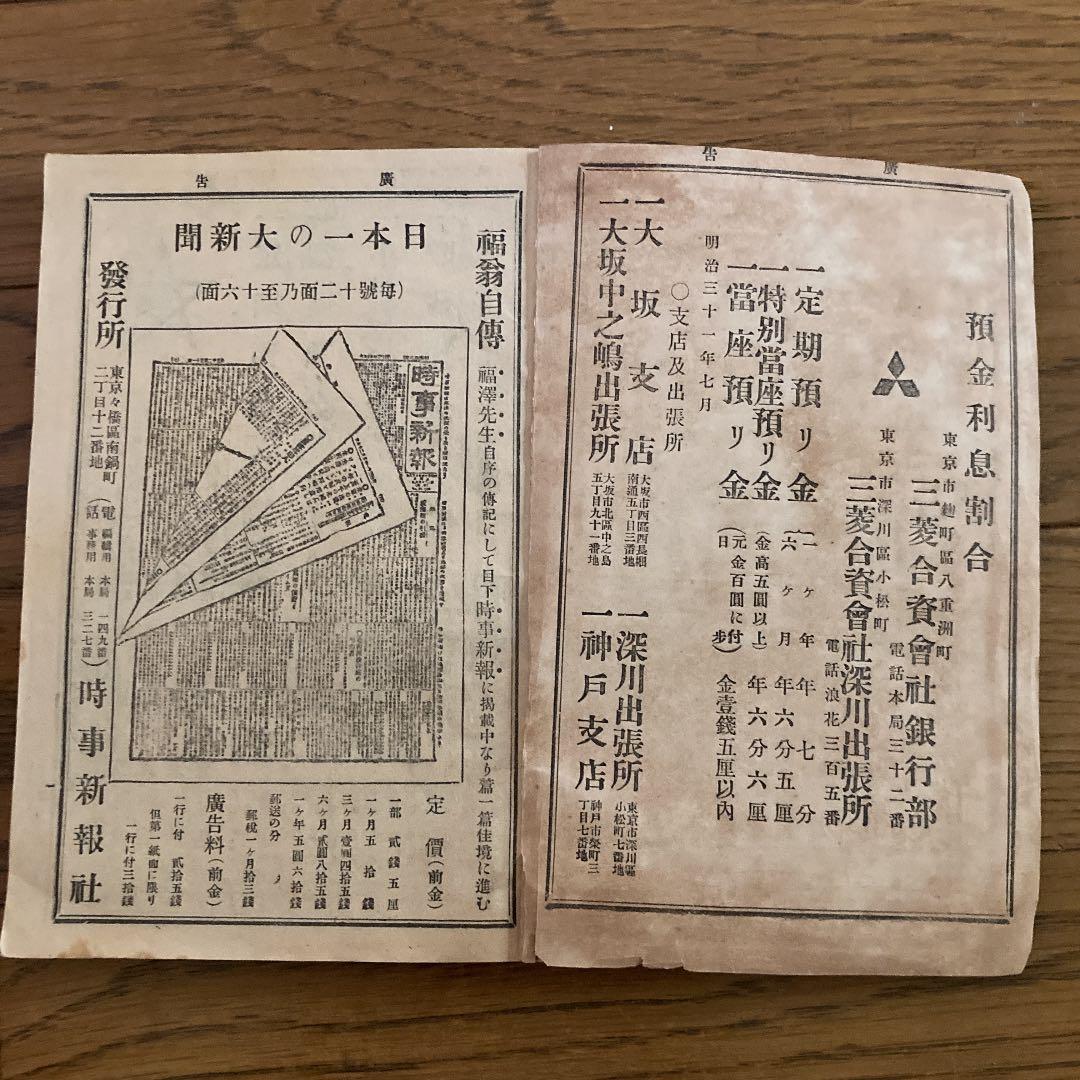 廣告
預金利息割合
東京市麹町區八重洲町
三菱合資會社銀行部
電話本局三十二番
東京市深川區小松町
三菱合資會社深川出張所
電話浪花三百五番
一定期預リ金
一ヶ年 年七分
六ヶ月 年六分五厘
一特別當座預リ金
(金高五圓以上) 年六分六厘
一當座預リ金
(元金百圓に付日步) 金壹錢五厘以內
明治三十一年七月
〇支店及出張所
一大坂支店
大坂市西區西長堀
南通五丁目三番地
一深川出張所
東京市深川區
小松町七番地
一大坂中之嶋出張所
大坂市北區中之島
五丁目九十一番地
一神戸支店
神戸市榮町三
丁目七番地
廣告
福翁自傳
福澤先生自序の傳記にして目下時事新報に揭載中なり篇一篇佳境に進む
日本一の大新聞
(每號十二面乃至十六面)
時事新報
定價(前金)
一部 貳錢五厘
一ヶ月五拾錢
三ヶ月壹圓四拾五錢
六ヶ月貳圓八拾五錢
一ヶ年五圓六拾錢
郵送の分
郵稅一ヶ月拾三錢
廣告料(前金)
一行に付 貳拾五錢
但第一紙面に限り
一行に付三拾錢
發行所
東京々橋區南鍋町
二丁目十二番地
(電話)
編輯用 本局 一四九番
事務用 本局 三二七番
時事新報社